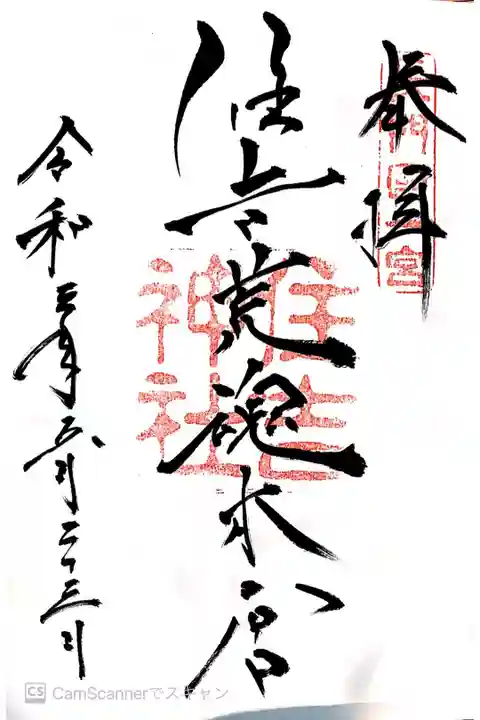 奉拝
住吉荒魂本宮
住吉
神社
令和五年五月二十三日
CS CamScannerでスキャン